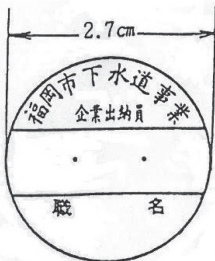 2.7cm
福岡市下水道事業
企業出納員
・ ・
職 名